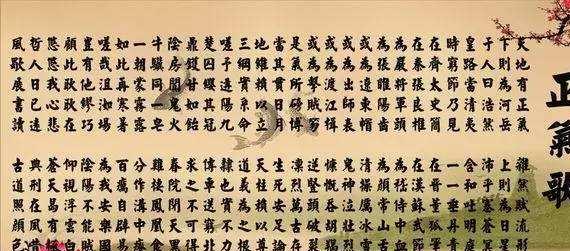 正氣歌
天地有正氣 雜然賦流形
下則為河岳 上則為日星
于人曰浩然 沛乎塞蒼冥
皇路當清夷 含和吐明庭
時窮節乃見 一一垂丹青
在齊太史簡 在晉董狐筆
在秦張良椎 在漢蘇武節
為嚴將軍頭 為嵇侍中血
為張睢陽齒 為顏常山舌
或為遼東帽 清操厲冰雪
或為出師表 鬼神泣壯烈
或為渡江楫 慷慨吞胡羯
或為擊賊笏 逆豎頭破裂
是氣所磅礴 凜烈萬古存
當其貫日月 生死安足論
地維賴以立 天柱賴以尊
三綱實系命 道義為之根
嗟予遘陽九 隸也實不力
楚囚纓其冠 傳車送窮北
鼎鑊甘如飴 求之不可得
陰房闃鬼火 春院閟天黑
牛驥同一皂 雞棲鳳凰食
一朝蒙霧露 分作溝中瘠
如此再寒暑 百癘自辟易
嗟哉沮洳場 為我安樂國
豈有他繆巧 陰陽不能賊
顧此耿耿在 仰視浮雲白
悠悠我心悲 蒼天曷有極
哲人日已遠 典刑在夙昔
風歇展書讀 古道照顏色